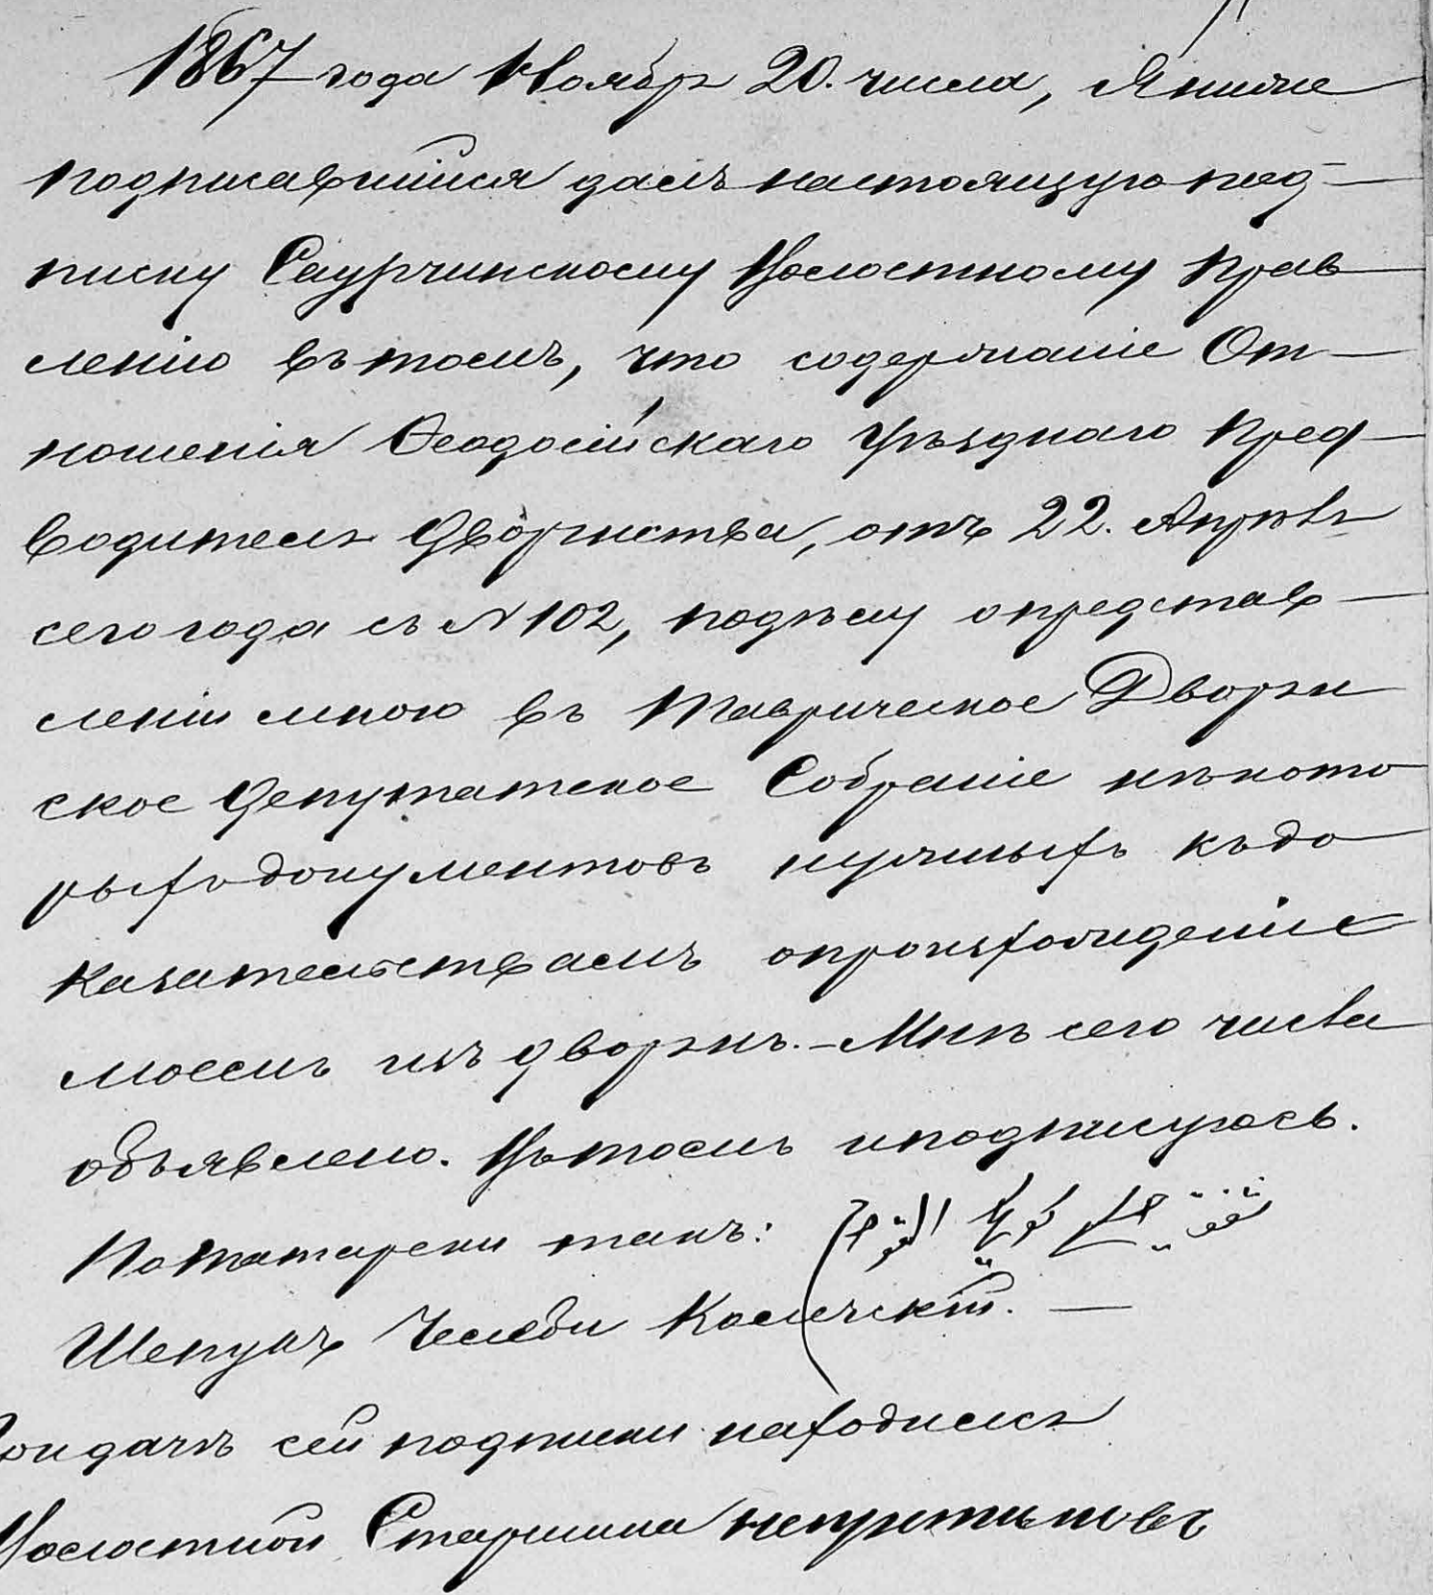 1867 года Ноября 20. числа, Я ниже
подписавшийся далъ настоящую под-
писку Саурчинскому Волостному Прав
ленію въ томъ, что содержаніе От-
ношенія Ѳеодосійскаго Уѣзднаго Пред-
водителя Дворянства, отъ 22. Апрѣля
сего года съ № 102, по дѣлу о представ-
леніи мною въ Таврическое Дворян
ское Депутатское Собраніе нѣкото
рыхъ документовъ нужныхъ къ до
казательствамъ о происхожденіе
моемъ изъ дворянъ. - Мнѣ сего числа
объявлено. Въ томъ и подписуюсь.
По татарски такъ:
Шепунъ Челеби
При дачѣ сей подписки находился
Волостной Старшина